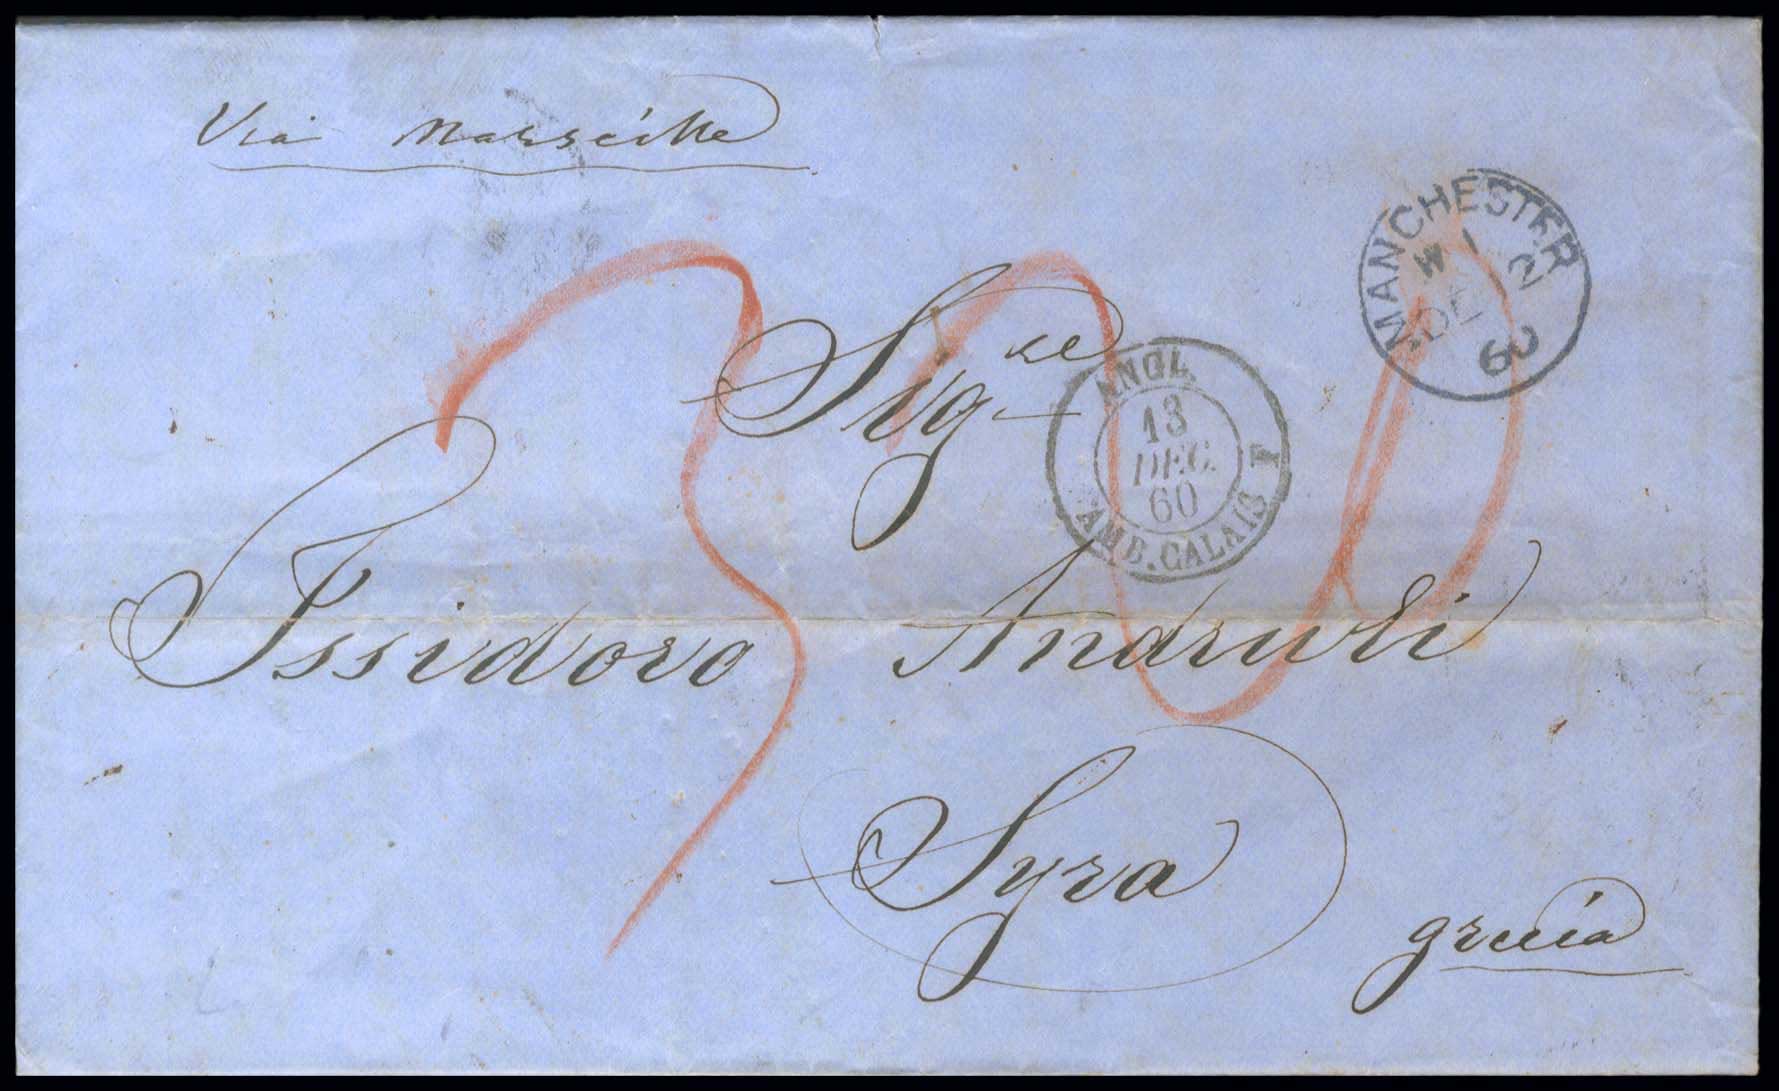 Via Marseille
MANCHESTER
W 1
DE 12
60
Sig.re
ANGL.
13
DEC.
60
AMB. CALAIS I
Issidoro Andruli
Syra
grecia